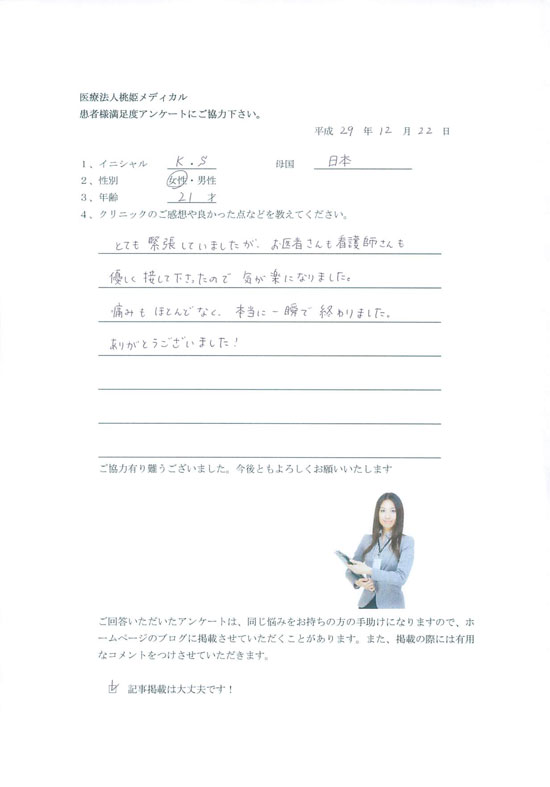 医療法人桃姫メディカル
患者様満足度アンケートにご協力下さい。
平成 29 年 12 月 22 日
1、イニシャル K.S 母国 日本
2、性別 女性・男性
3、年齢 21 才
4、クリニックのご感想や良かった点などを教えてください。
とても 緊張していましたが、お医者さんも看護師さんも
優しく 接して下さったので 気が楽になりました。
痛みも ほとんどなく、本当に一瞬で 終わりました。
ありがとうございました!
ご協力有り難うございました。今後ともよろしくお願いいたします
ご回答いただいたアンケートは、同じ悩みをお持ちの方の手助けになりますので、ホ
ームページのブログに掲載させていただくことがあります。また、掲載の際には有用
なコメントをつけさせていただきます。
記事掲載は大丈夫です!